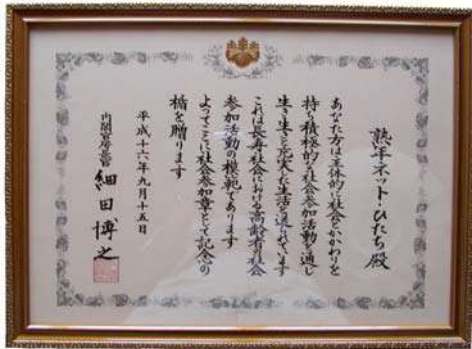 熟年ネット・ひたち殿
あなた方は主体的に社会とかかわりを
持ち積極的な社会参加活動を通じ
生き生きと充実した生活を送られています
これは長寿社会における高齢者の社会
参加活動の模範であります
よってここに社会参加章として記念の
楯を贈ります
平成十六年九月十五日
内閣官房長官 細田博之